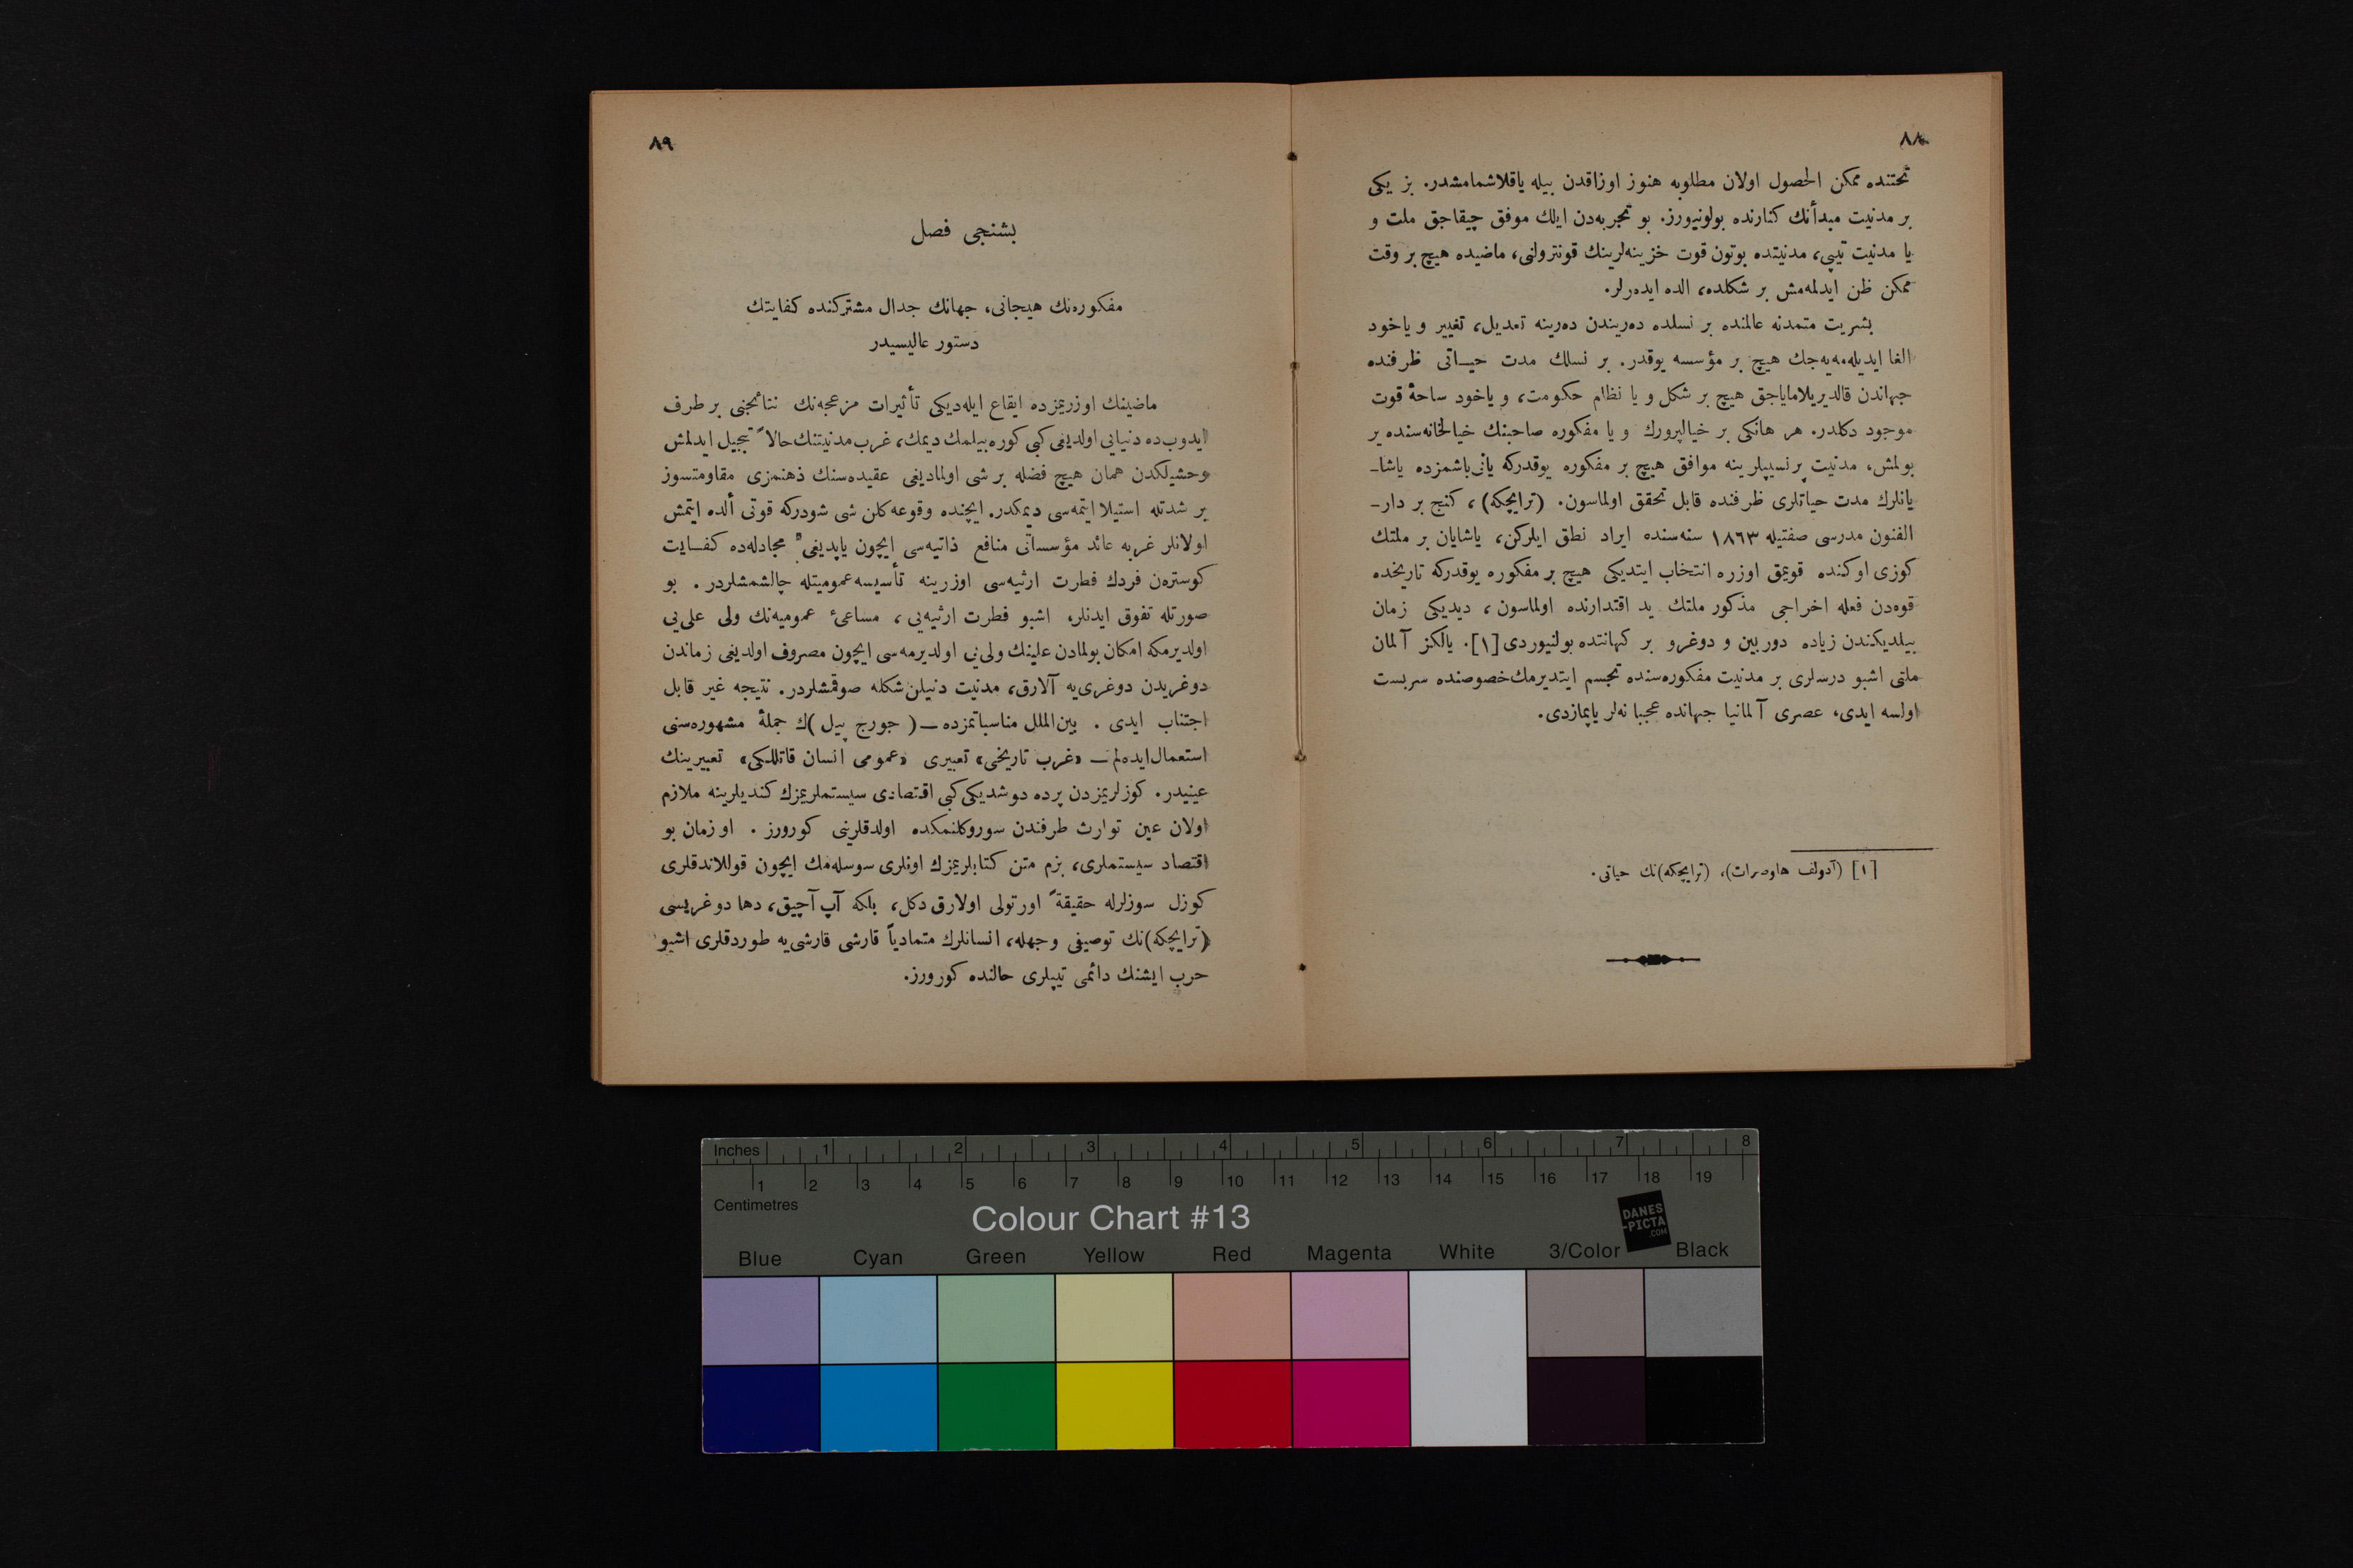 ٨٨
تحتنده ممكن الحصول اولان مطلوبه هنوز اوزاقدن بيله ياقلاشمامشدر. بز يكى
بر مدنيت مبدأنك كنارنده بولونيورز. بو تجربه‌دن ايلك موفق چيقاجق ملت و
يا مدنيت تيپى، مدنيتده بوتون قوت خزينه‌لرينك قونترولنى، ماضيده هيچ بر وقت
ممكن ظن ايدلمه‌مش بر شكلده، الده ايده‌رلر.
بشريت متمدنه عالمنده بر نسلده ده‌ريندن ده‌رينه تعديل، تغيير و ياخود
الغا ايديله‌مه‌يه‌جك هيچ بر مؤسسه يوقدر. بر نسلك مدت حيـاتى ظرفنده
جهاندن قالديريلاماياجق هيچ بر شكل و يا نظام حكومت، و ياخود ساحۀ قوت
موجود دكلدر. هر هانكى بر خيالپرورك و يا مفكوره صاحبنك خيالخانه‌سنده ير
بولمش، مدنيت پرنسيپلرينه موافق هيچ بر مفكوره يوقدركه يانى‌باشمزده ياشا-
يانلرك مدت حياتلرى ظرفنده قابل تحقق اولماسون. (ترايچكه)، كنج بر دار-
الفنون مدرسى صفتيله ١٨٦٣ سنه‌سنده ايراد نطق ايلركن، ياشايان بر ملتك
كوزى اوكنده قويمق اوزره انتخاب ايتديكى هيچ بر مفكوره يوقدركه تاريخده
قوه‌دن فعله اخراجى مذكور ملتك يد اقتدارنده اولماسون، ديديكى زمان
بيلديكندن زياده دوربين و دوغرو بر كهانتده بولنيوردى [١]. يالكز آلمان
ملتى اشبو درسلرى بر مدنيت مفكوره‌سنده تجسم ايتديرمك خصوصنده سربست
اولسه ايدى، عصرى آلمانيا جهانده عجبا نه‌لر ياپمازدى.
[١] (آدولف هاوسرات)، (ترايچكه)نك حياتى.
٨٩
بشنجى فصل
مفكوره‌نك هيجانى، جهانك جدال مشتركنده كفايتك
دستور عاليسيدر
ماضينك اوزريمزده ايقاع ايله‌ديكى تأثيرات مزعجه‌نك نتائجنى بر طرف
ايدوب‌ده دنيايى اولديغى كبى كوره‌بيلمك ديمك، غرب مدنيتنك حالاً تبجيل ايدلمش
وحشيلكدن همان هيچ فضله بر شى اولماديغى عقيده‌سنك ذهنمزى مقاومتسوز
بر شدتله استيلا ايتمه‌سى ديمكدر. ايچنده وقوعه كلن شى شودركه قوتى ألده ايتمش
اولانلر غربه عائد مؤسساتى منافع ذاتيه‌سى ايچون ياپديغى مجادله‌ده كفـايت
كوسترن فردك فطرت ارثيه‌سى اوزرينه تأسيسه عموميتله چالشمشلردر. بو
صورتله تفوق ايدنلر، اشبو فطرت ارثيه‌يى، مساعئ عموميه‌نك ولى على‌يى
اولديرمكه امكان بولمادن علينك ولى‌يى اولديرمه‌سى ايچون مصروف اولديغى زماندن
دوغريدن دوغرى‌يه آلارق، مدنيت دنيلن شكله صوقمشلردر. نتيجه غير قابل
اجتناب ايدى. بين‌الملل مناسباتمزده — (جورج پيل)ك جملۀ مشهوره‌سنى
استعمال ايده‌لم — «غرب تاريخى» تعبيرى «عمومى انسان قاتللكى» تعبيرينك
عينيدر. كوزلريمزدن پرده دوشديكى كبى اقتصادى سيستملريمزك كنديلرينه ملازم
اولان عين توارث طرفندن سوروكلنمكده اولدقلرينى كورورز. او زمان بو
اقتصاد سيستملرى، بزم متن كتابلريمزك اونلرى سوسله‌مك ايچون قوللاندقلرى
كوزل سوزلرله حقيقةً اورتولى اولارق دكل، بلكه آپ آچيق، دها دوغريسى
(ترايچكه)نك توصيفى وجهله، انسانلرك متمادياً قارشى قارشى‌يه طوردقلرى اشبو
حرب ايشنك دائمى تيپلرى حالنده كورورز.
Inches 1 2 3 4 5 6 7 8
1 2 3 4 5 6 7 8 9 10 11 12 13 14 15 16 17 18 19
Centimetres
Colour Chart #13
DANES
-PICTA
.COM
Blue Cyan Green Yellow Red Magenta White 3/Color Black